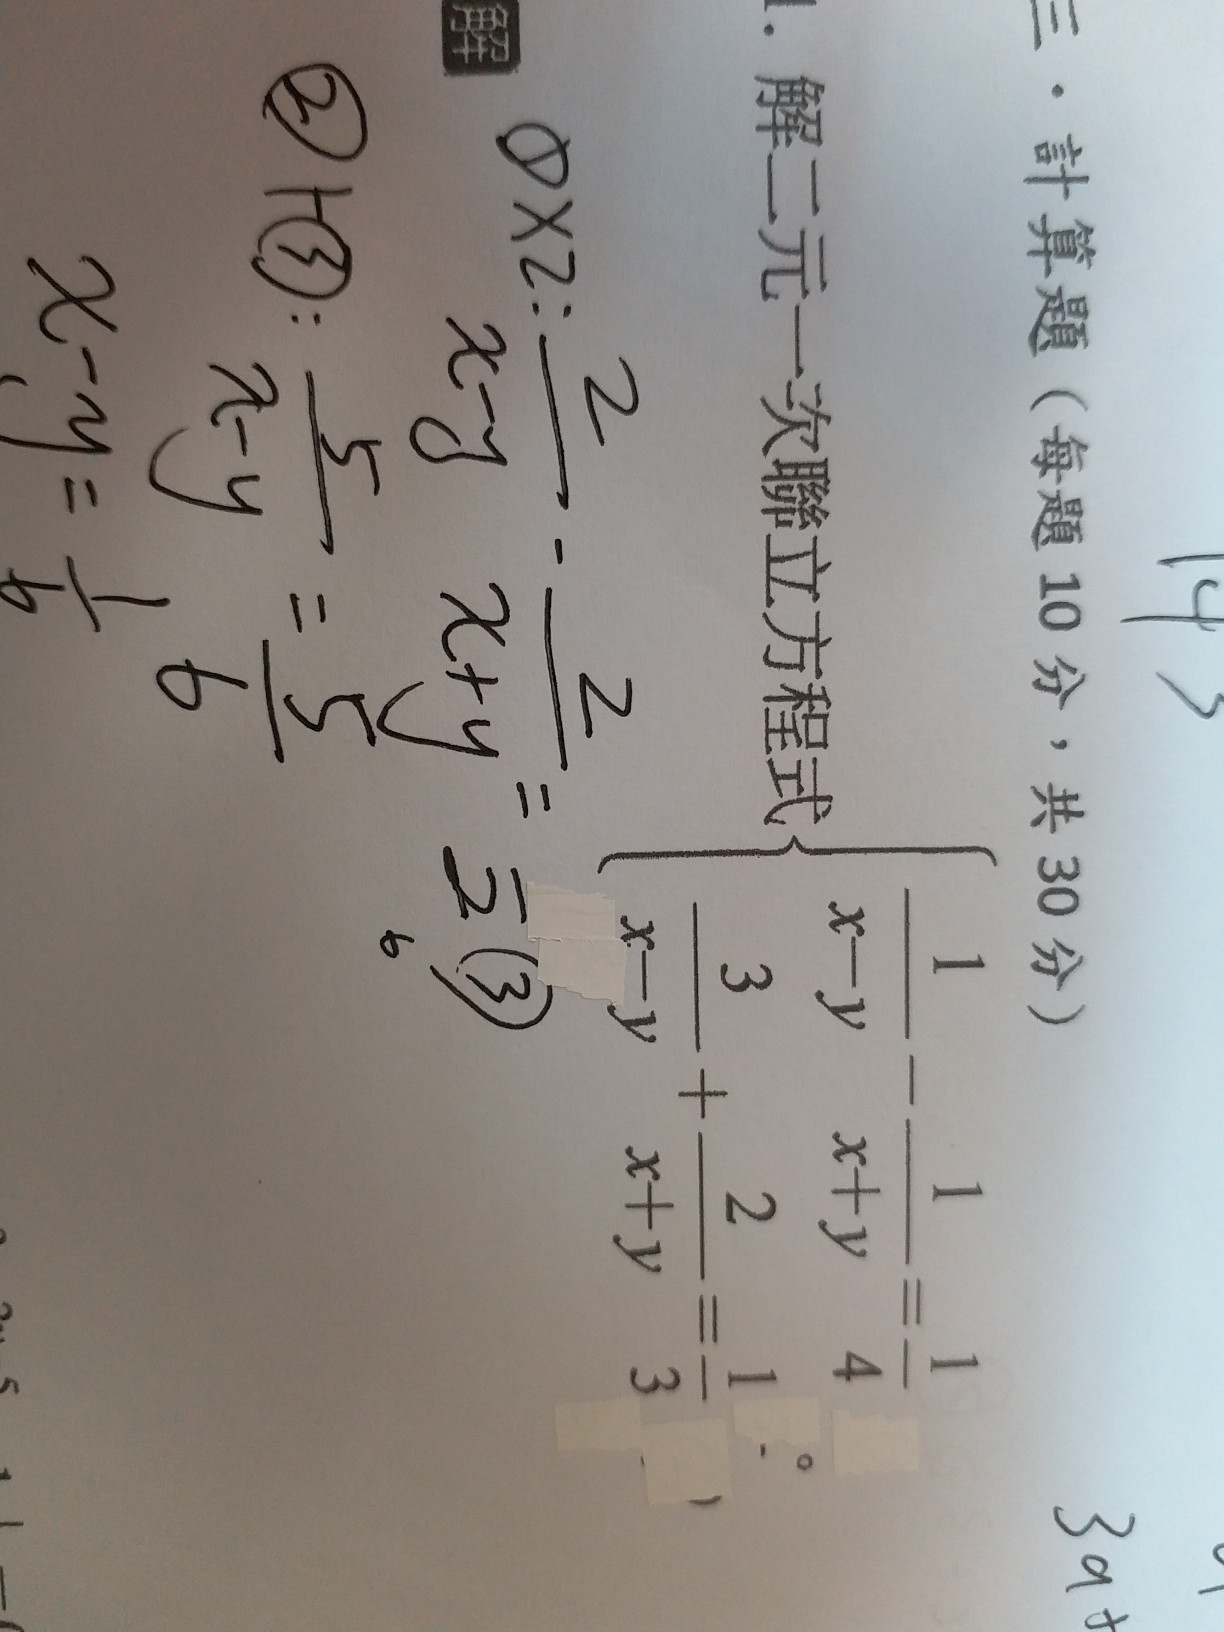 14
3
3a+
三．計算題（每題 10 分，共 30 分）
1. 解二元一次聯立方程式 { 1/(x−y) − 1/(x+y) = 1/4
3/(x−y) + 2/(x+y) = 1/3 。
解
① x 2: 2/(x-y) - 2/(x+y) = 2 ③
6
② + ③: 5/(x-y) = 5/6
x-y = 1/6